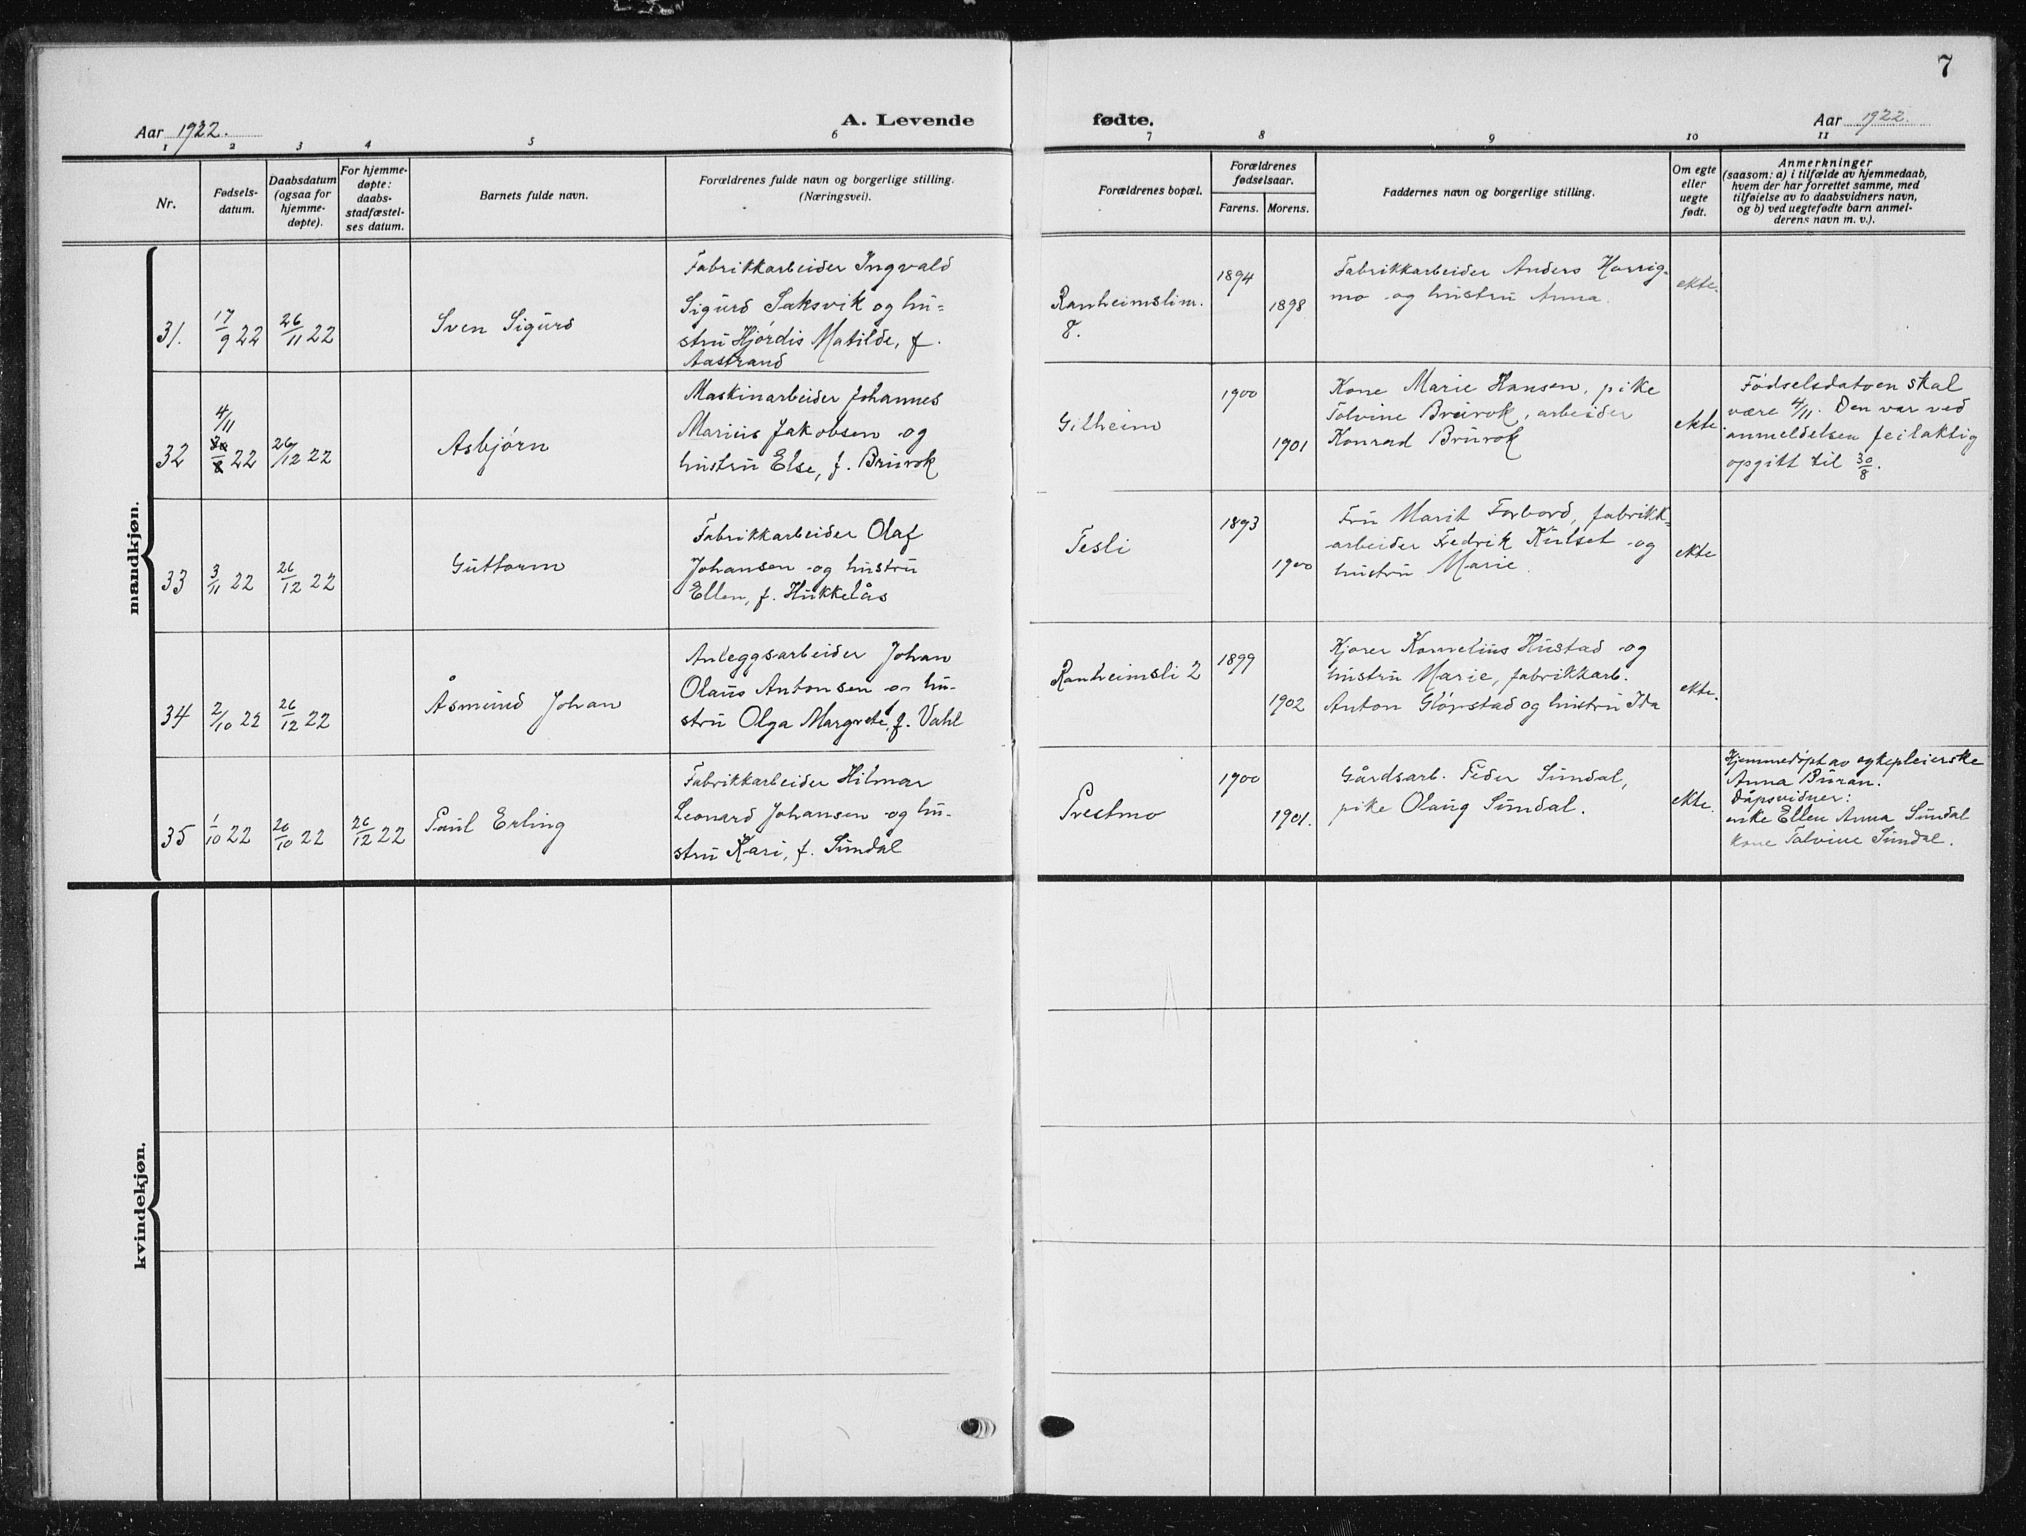 7
Aar 1922.
A. Levende
fødte.
Aar 1922.
1 2 3 4 5 6 7 8 9 10 11
Nr.
Fødsels-
datum.
Daabsdatum
(ogsaa for
hjemme-
døpte).
For hjemme-
døpte:
daabs-
stadfæstel-
ses datum.
Barnets fulde navn.
Forældrenes fulde navn og borgerlige stilling.
(Næringsvei).
Forældrenes bopæl.
Forældrenes
fødselsaar.
Farens. Morens.
Faddernes navn og borgerlige stilling.
Om egte
eller
uegte
født.
Anmerkninger
(saasom: a) i tilfælde av hjemmedaab,
hvem der har forrettet samme, med
tilføielse av to daabsvidners navn,
og b) ved uegtefødte barn anmel-
derens navn m. v.).
mandkjøn.
31.
17/9 22
26/11 22
Sven Sigurd
Fabrikkarbeider Ingvald
Sigurd Saksvik og hu-
stru Hjørdis Matilde, f.
Aastrand
Ranheimslim.
8.
1894
1898
Fabrikkarbeider Anders Horrig-
mo og hustru Anna.
ekte.
32
4/11
30/8 22
26/12 22
Asbjørn
Maskinarbeider Johannes
Marius Jakobsen og
hustru Else, f. Brurok
Gilheim
1900
1901
Kone Marie Hansen, pike
Tolvine Brurok, arbeider
Konrad Brurok
ekte.
Fødselsdatoen skal
være 4/11. Den var ved
anmeldelsen feilaktig
opgitt til 30/8.
33
3/11 22
26/12 22
Guttorm
Fabrikkarbeider Olaf
Johansen og hustru
Ellen, f. Hukkelås
Tesli
1893
1900
Fru Marit Forbord, fabrikk-
arbeider Fredrik Kulset og
hustru Marie.
ekte
34
2/10 22
26/12 22
Åsmund Johan
Anleggsarbeider Johan
Olaus Antonsen og hu-
stru Olga Margrete, f. Vahl
Ranheimsli 2
1899
1902
Kjører Kornelius Hustad og
hustru Marie, fabrikkarb.
Anton Glørstad og hustru Ida
ekte.
35
1/10 22
20/10 22
26/12 22
Paul Erling
Fabrikkarbeider Hilmar
Leonard Johansen og hu-
stru Kari, f. Sundal
Prestmo
1900
1901.
Gårdsarb. Peder Sundal,
pike Olaug Sundal.
ekte.
Hjemmedøpt av sykepleierske
Anna Buran.
Dåpsvidner:
enke Ellen Anna Sundal
kone Tolvine Sundal.
kvindekjøn.